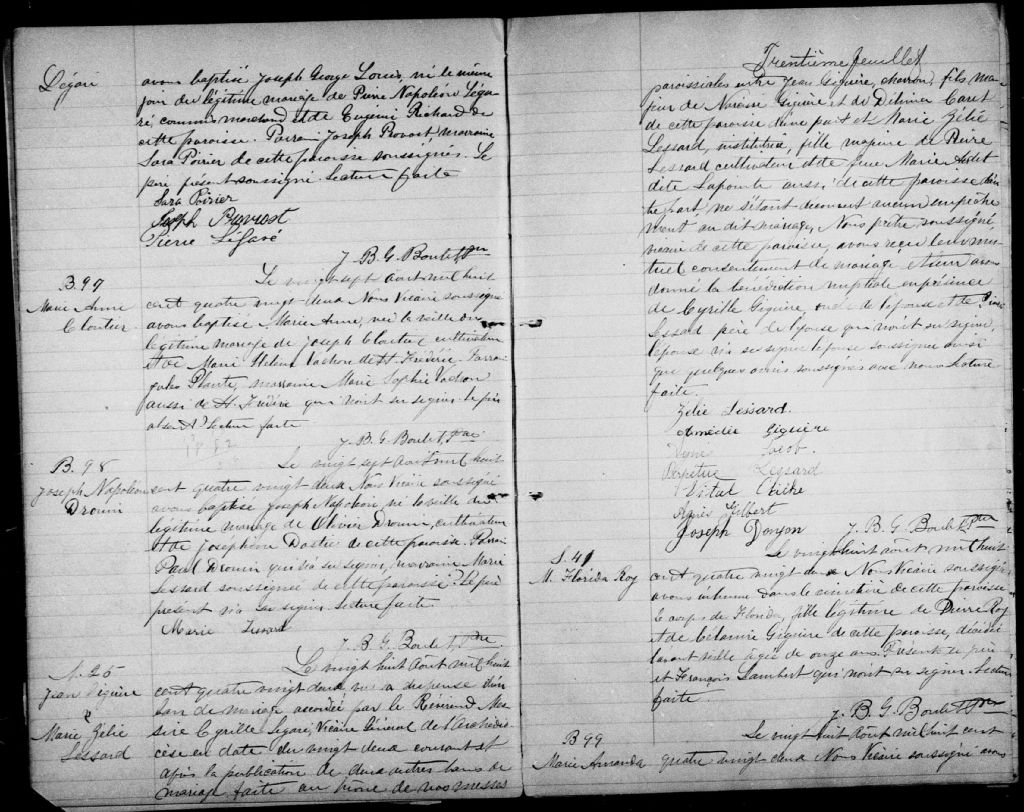 Légaré
avons baptisé Joseph George Louis, né le même
jour du légitime mariage de Pierre Napoléon Léga-
ré, commis marchand et de Eugénie Richard de
cette paroisse. Parrain Joseph Provost marraine
Sara Poirier de cette paroisse soussignés. Le
père présent soussigné. Lecture faite
Sara Poirier
Joseph Provost
Pierre Légaré
J. B. G. Boulet Ptre
B. 97
Marie Anne
Cloutier
Le vingt sept Aout mil huit
cent quatre vingt deux Nous Vicaire soussigné
avons baptisé Marie Anne, née la veille du
légitime mariage de Joseph Cloutier cultivateur
et de Marie Helène Vachon de St. Frédéric. Parrain
Jules Plante, marraine Marie Sophie Vachon
aussi de St. Frédéric qui n'ont su signer le père
absent. Lecture faite
J. B. G. Boulet Ptre
B. 98
Joseph Napoléon
Drouin
Le vingt sept Aout mil huit
cent quatre vingt deux Nous Vicaire soussigné
avons baptisé Joseph Napoléon né la veille du
légitime mariage de Olivier Drouin, cultivateur
et de Joséphine Dostie de cette paroisse. Parrain
Paul Drouin qui n'a su signer, marraine Marie
Lessard soussignée de cette paroisse. Le père
present n'a su signer. Lecture faite
Marie Lessard
J. B. G. Boulet Ptre
M. 25
Jean Giguère
&
Marie Zélie
Lessard
Le vingt huit Août mil huit
cent quatre vingt deux vu la dispense d'un
ban de mariage accordée par le Révérend Mes-
sire Cyrille Légaré, Vicaire Général de l'Archidio-
cèse en date du vingt deux courant et
après la publication de deux autres bans de
mariage faite au prône de nos messes
Trentième feuillet
paroissiales entre Jean Giguère, charron, fils ma-
jeur de Narcisse Giguère et de Délima Caret
de cette paroisse d'une part et Marie Zélie
Lessard, institutrice, fille majeure de Pierre
Lessard cultivateur et de feue Marie
dite Lapointe aussi de cette paroisse d'au-
tre part, ne s'étant découvert aucun empêche-
ment au dit mariage, Nous prêtre soussigné,
vicaire de cette paroisse, avons reçu leur mu-
tuel consentement de mariage et leur avons
donné la bénédiction nuptiale en présence
de Cyrille Giguère, oncle de l'époux et de Pierre
Lessard père de l'épouse qui n'ont su signer,
l'époux n'a su signer l'épouse soussignée ainsi
que quelques amis soussignés avec nous lecture
faite.
Zélie Lessard.
Amédée Giguère
Jacob.
Perpétue Lessard
Vital Cliche
Agnès Gilbert
Joseph Donjon
J. B. G. Boulet Ptre
S. 41
M. Florida Roy
Le vingt huit aout mil huit
cent quatre vingt deux Nous Vicaire soussigné
avons inhumé dans le cimetière de cette paroisse
le corps de Florida, fille légitime de Pierre Roy
et de Célanire Giguère de cette paroisse, décédée
l'avant veille âgée de onze ans. Présents le père
et François Lambert qui n'ont su signer. Lecture
faite.
J. B. G. Boulet Ptre
B 99
Marie Amanda
Le vingt huit Aout mil huit cent
quatre vingt deux Nous Vicaire soussigné avons